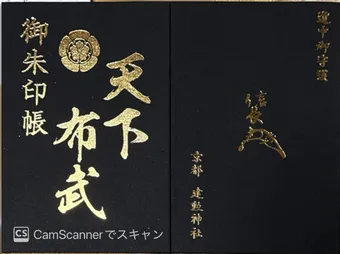 御朱印帳
天下
布武
道中御守護
京都 建勲神社
CS CamScannerでスキャン